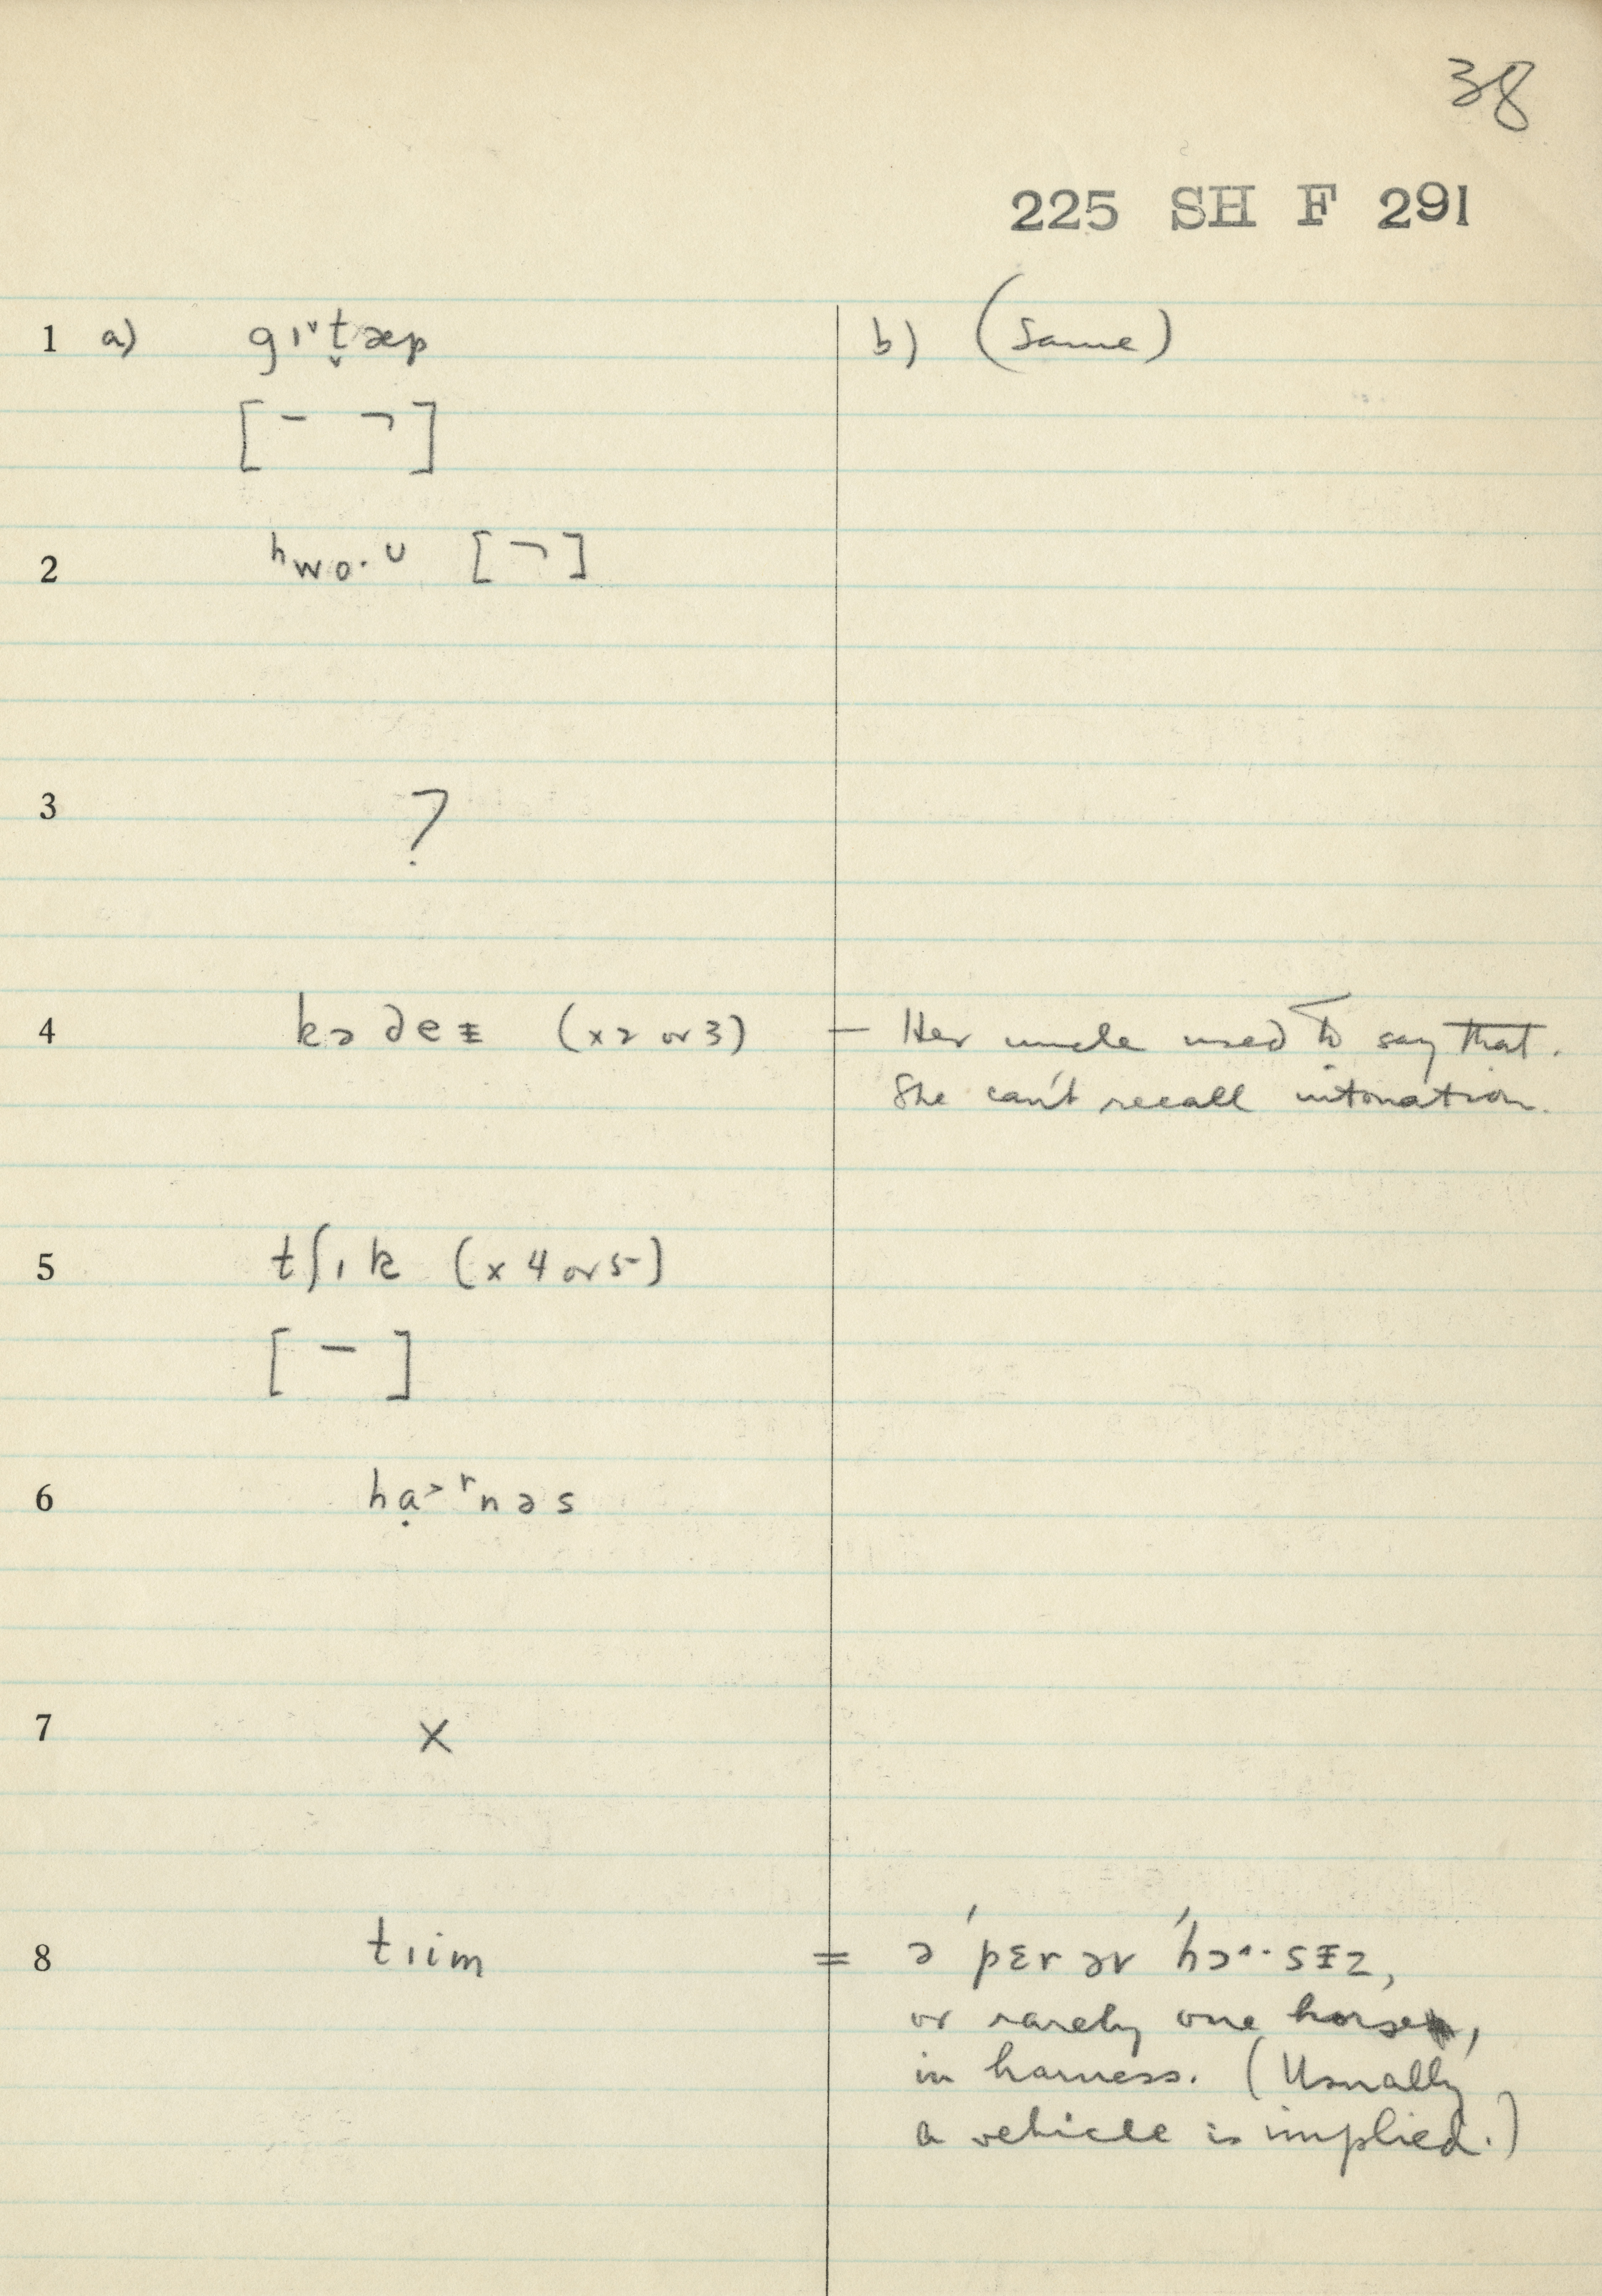 38
225 SH F 291
1 a) gɪ˅t̬æp b) (Same)
[ ¯ ¬ ]
2 ʰwo·ᵁ [ ¬ ]
3 ?
4 kɔ ∂eɨ (x2 or 3) — Her uncle used to say that.
She can't recall intonation.
5 tʃɪk (x 4 or 5)
[ ¯ ]
6 hạ˃ʳnəs
7 x
8 tɪim = ə ˈpɛrər ˈhɔ˄·sɨz,
or rarely one horse,
in harness. (Usually
a vehicle is implied.)